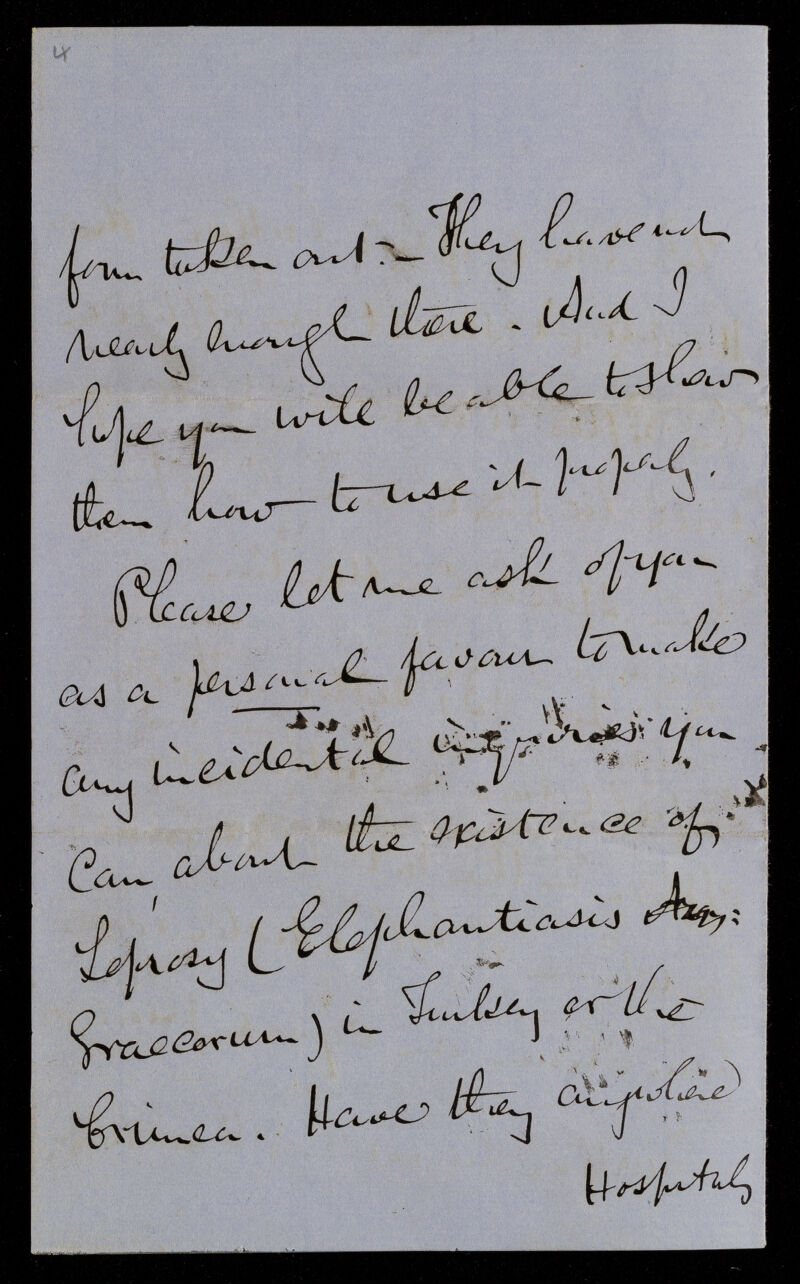 4
form taken out. – They have not
nearly enough there. And I
hope you will be able to show
them how to use it properly.
Please let me ask of you
as a personal favour to make
any incidental inquiries you
can, about the existence of
Leprosy (Elephantiasis
Graecorum) in Turkey or the
Crimea. Have they anywhere
Hospitals